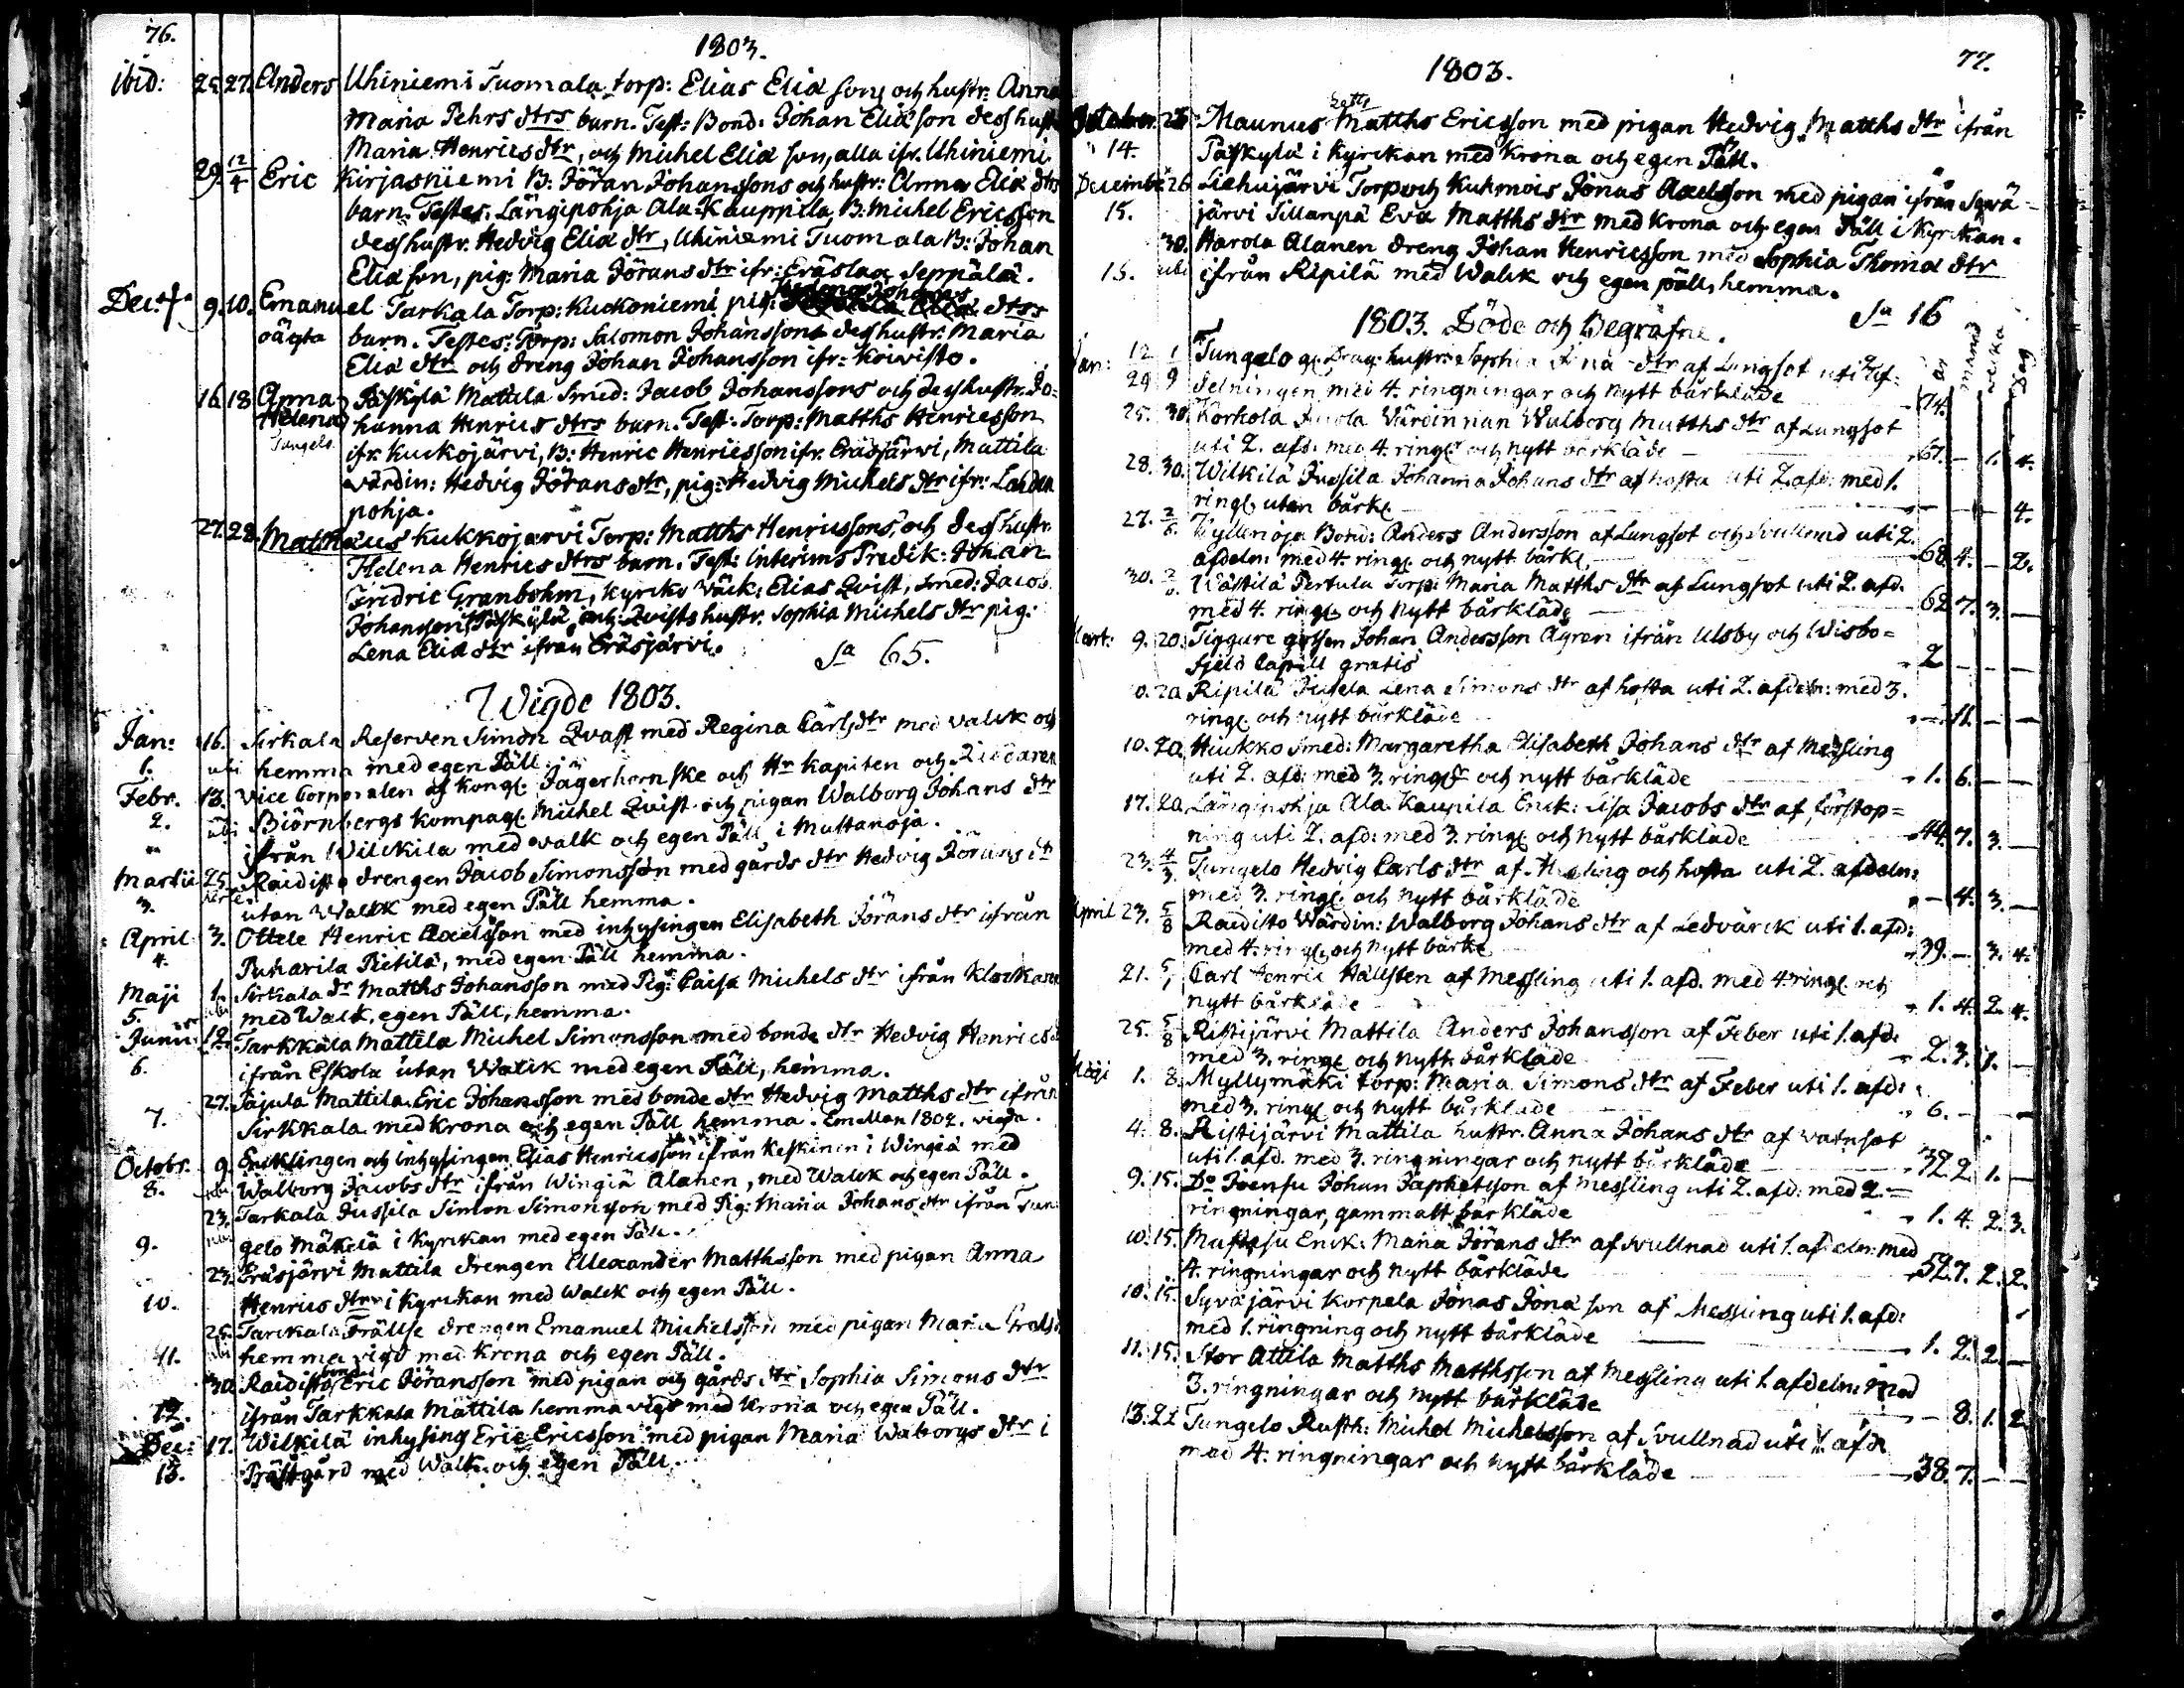 76.
1803.
ibid: 25. 27. Anders Uhiniemi Tuomala torp: Elias Eliæ sons och hustr: Anna
Maria Pehrs dtrs barn. Test: Bond: Johan Eliæ son dess hustr
Maria Henrics dtr, och Michel Eliæ son, alla ifr. Uhiniemi.
29. 12/4 Eric Kirjasniemi B: Jöran Johanssons och hustr: Anna Eliæ dtrs
barn. Testes. Längipohja Ala-Kauppila, B: Michel Ericsson
dess hustr. Hedvig Eliæ dtr, Uhiniemi Tuomala B: Johan
Eliæ son, pig: Maria Jörans dtr ifr: Eräslax Seppälä.
Dec. 9. 10. Emanuel Tarkala Torp: Kuckoniemi pig: Johans dtrs
oägta barn. Testes: Torp: Salomon Johanssons dess hustr. Maria
Eliæ dtr och dreng Johan Johansson ifr: Koivisto.
16. 18 Anna Päskylä Mattila Smed: Jacob Johanssons och dess hustr. Jo=
Helena hanna Henrics dtrs barn. Test: Torp: Matths Henricsson
ifr. Kuckojärvi, B: Henric Henricsson ifr. Eräsjärvi, Mattila
värdin: Hedvig Jörans dtr, pig: Hedvig Michels dtr ifr: Lahden
pohja.
27. 28. Matthæus Kukkojärvi Torp: Matths Henricssons, och dess hustr.
Helena Henrics dtrs barn. Test: interims Predik: Johan
Fredric Granbohm, Kyrko väk: Elias Qvist, Smed: Jacob
Johansson Päskylä, och Qvists hustr. Sophia Michels dtr pig:
Lena Eliæ dtr ifrån Eräsjärvi.
Sa 65.
Wigde 1803.
Jan: 16. Sirkala Reserven Simon Qvast med Regina Carls dtr med valck och
1. ubi hemma med egen Päll.
Febr. 13. Vice Corporalen af Kongl: Jägerhornske och Hr Kapiten och Riddaren
2. ubi Biörnbergs Kompagl: Michel Qvist och pigan Walborg Johans dtr
ifrån Wilckila med valk och egen Päll i Mustanoja.
Martii 25. Raidisto drengen Jacob Simonsson med gårds dtr Hedvig Jörans dtr
3. utan Walck med egen Päll hemma.
April 3. Ottele Henric Axelsson med inhysingen Elisabeth Jörans dtr ifrån
4. Puharila Pietilä, med egen Päll hemma.
Maji 1. Sirkala dr Matths Johansson med Pig: Caisa Michels dtr ifrån Klockaren
5. med Walk, egen Päll, hemma.
Junii 12. Tarkkala Mattila Michel Simonsson med bonde dtr Hedvig Henrics
6. ifrån Eskola utan Walck med egen Päll, hemma.
27. Pajula Mattila Eric Johansson med bonde dtr Hedvig Matths dtr ifrån
7. Sirkkala med Krona och egen Päll hemma. Emellan 1802. vigda.
Octobr. 9. Encklingen och inhysingen Elias Henricsson ifrån Keskinen i Wingiä med
8. Walborg Jacobs dtr ifrån Wingiä Alanen, med Walck och egen Päll.
23. Tarkala Jussila Simon Simonsson med Pig: Maria Johans dtr ifrån Tun
9. gelo Mäkelä i Kyrckan med egen Päll.
23. Eräsjärvi Mattila drengen Ellexander Matthsson med pigan Anna
10. Henrics dtr i Kyrckan med Walck och egen Päll.
25. Tarckala Frälsse drengen Emanuel Michelsson med pigan Maria
11. hemma vigd med Krona och egen Päll.
30. Raidisto bond: Eric Jöransson med pigan och gårds dtr Sophia Simons dtr
12. ifrån Tarkkala Mattila hemma vigd med Krona och egen Päll.
Dec: 17. Wilkilä inhysing Eric Ericsson med pigan Maria Walborgs dtr i
13. Prästgård med Walk och egen Päll.
77.
1803.
October. 26 Maunus Matths Ericsson med pigan Hedvig Matths dtr ifrån
14. Päskylä i Kyrckan med Krona och egen Päll.
December 26 Liehujärvi Torp och Kuhmois Jonas Axelsson med pigan ifrån Syvä=
15. järvi Sillanpä Eva Matths dtr med Krona och egen Päll i Kyrckan.
30. Harola Alanen dreng Johan Henricsson med Sophia Thomæ dtr
16. ubi ifrån Ripilä med Walck och egen päll, hemma.
Sa 16
1803. Döde och Begrafne.
år månd vecka dag
Jan: 12 1 Tungelo gl: Drag: hustr: Sophia dtr af Lungsot uti 2 af:
29 9 delningen med 4. ringningar och nytt bårkläde 74.
25. 30. Korhola Juola Värdinnan Walborg Matths dtr af Lungsot
uti 2. afd. med 4. ringl och nytt bårkläde 67. — 1. 4.
28. 30. Wilkilä Jussila Johanna Johans dtr af hosta uti 2 afd. med 1.
ringl. utan bårkl. — — — 4.
27. 2/6. Kyllenoja Bond: Anders Andersson af Lungsot och svullnad uti 2.
afdeln: med 4. ringl. och nytt bårkl. 68. 4. — 2.
30. Västilä Pertula Torp: Maria Matths dtr af Lungsot uti 2. afd.
med 4. ringl. och nytt bårkläde 62. 7. 3. —
Mart: 9. 20. Tiggare gossen Johan Andersson Ågren ifrån Ulsby och Wisbo=
fjeld Capell gratis 2 — — —
10. 20 Ripilä Jussela Lena Simons dtr af hosta uti 2. afdeln: med 3.
ringl. och nytt bårkläde — 11. — —
10. 20 Huukko Smed: Margaretha Elisabeth Johans dtr af Messling
uti 2. afd: med 3. ringl. och nytt bårkläde 1. 6. — —
17. 20 Längipohja Ala Kaupila Enck: Lisa Jacobs dtr af förstop=
ning uti 2. afd: med 3. ringl. och nytt bårkläde 44. 7. 3. —
23. 4/3. Tungelo Hedvig Carls dtr af Messling och hosta uti 2. afdeln:
med 3. ringl. och nytt bårkläde — 4. 3. —
April 23. 5/8 Raidisto Wärdin: Walborg Johans dtr af Ledvärck uti 1. afd:
med 4. ringl. och nytt bårkl. 39. — 3. 4.
21. Carl Henric Hällsten af Messling uti 1. afd. med 4. ringl. och
nytt bårkläde 1. 4. 2. 4.
25. 5/8 Ristijärvi Mattila Anders Johansson af Feber uti 1. afd.
med 3. ringl. och nytt bårkläde 2. 3. 1. —
Maji 1. 8. Myllymäki torp: Maria Simons dtr af Feber uti 1. afd:
med 3. ringl. och nytt bårkläde 6. — —
4. 8. Ristijärvi Mattila hustr. Anna Johans dtr af vatnsot
uti 1. afd. med 3. ringningar och nytt bårkläde 32. 2. 1. —
9. 15. Do Joensu Johan Japhetsson af Messling uti 2. afd: med 2. =
ringningar, gammalt bårkläde 1. 4. 2. 3.
10. 15. Enck: Maria Jörans dtr af svullnad uti 1. afdeln: med
4. ringningar och nytt bårkläde 52. 7. 2. 2.
10. 15. Syväjärvi Korpela Jonas Jonæ son af Messling uti 1. afd:
med 1. ringning och nytt bårkläde 1. 2. 2. —
11. 15. Stor Attila Matths Matthsson af Messling uti 1. afdeln: med
3. ringningar och nytt bårkläde — 8. 1. 2
13. 22 Tungelo Rusth: Michel Michelsson af svullnad uti 1. afd
med 4. ringningar och nytt bårkläde 38. 7. — —